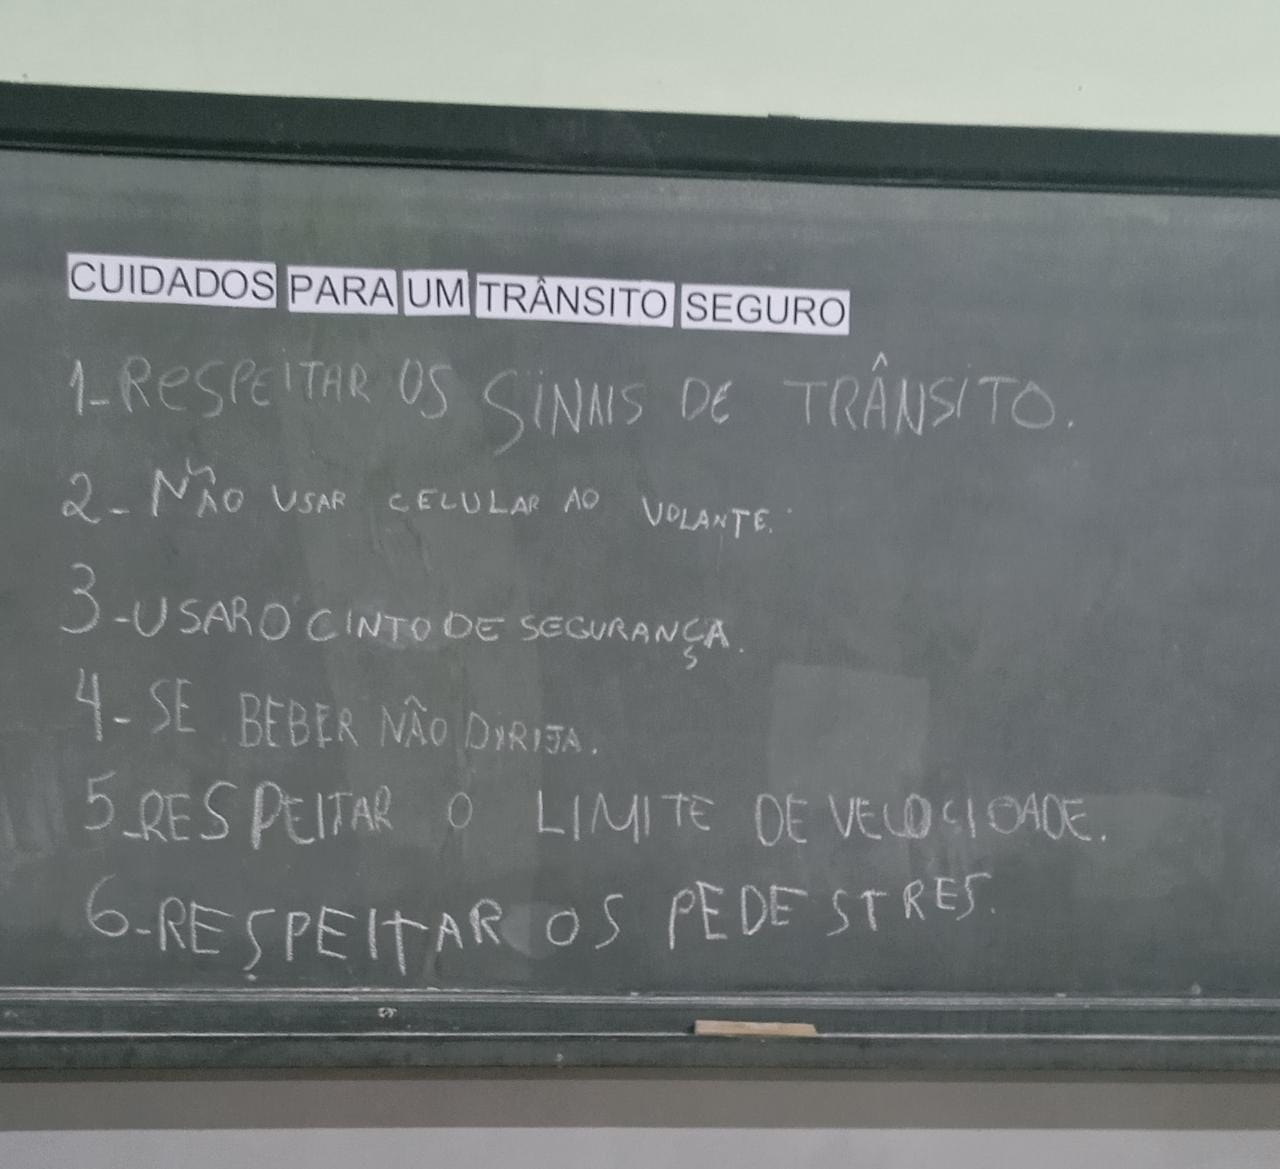 CUIDADOS PARA UM TRÂNSITO SEGURO
1-RESPEITAR OS SINAIS DE TRÂNSITO.
2- NÃO USAR CELULAR AO VOLANTE.
3-USAR O CINTO DE SEGURANÇA.
4- SE BEBER NÃO DIRIJA.
5-RESPEITAR O LIMITE DE VELOCIDADE.
6-RESPEITAR OS PEDESTRES.